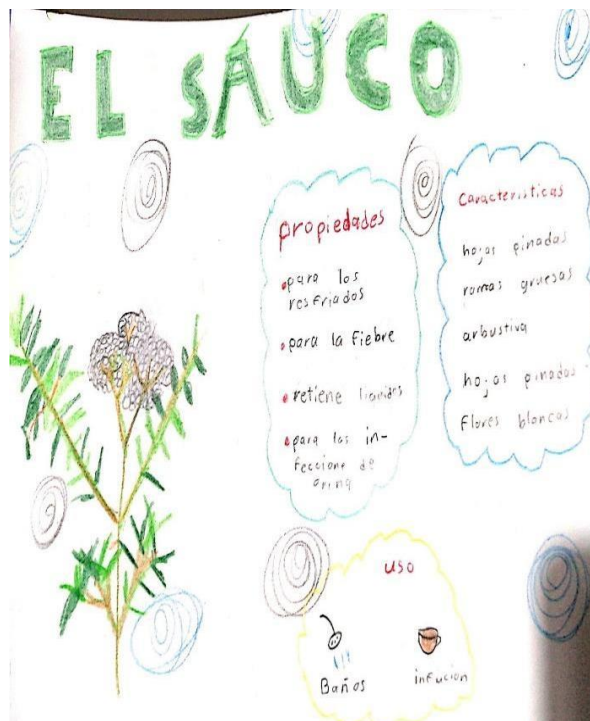 EL SÁUCO
propiedades
•para los
resfriados
•para la fiebre
•retiene liquidos
•para las in-
feccione de
orina
Caracteristicas
hojas pinadas
ramas gruesas
arbustiva
hojas pinadas
Flores blancas
uso
Baños
infucion